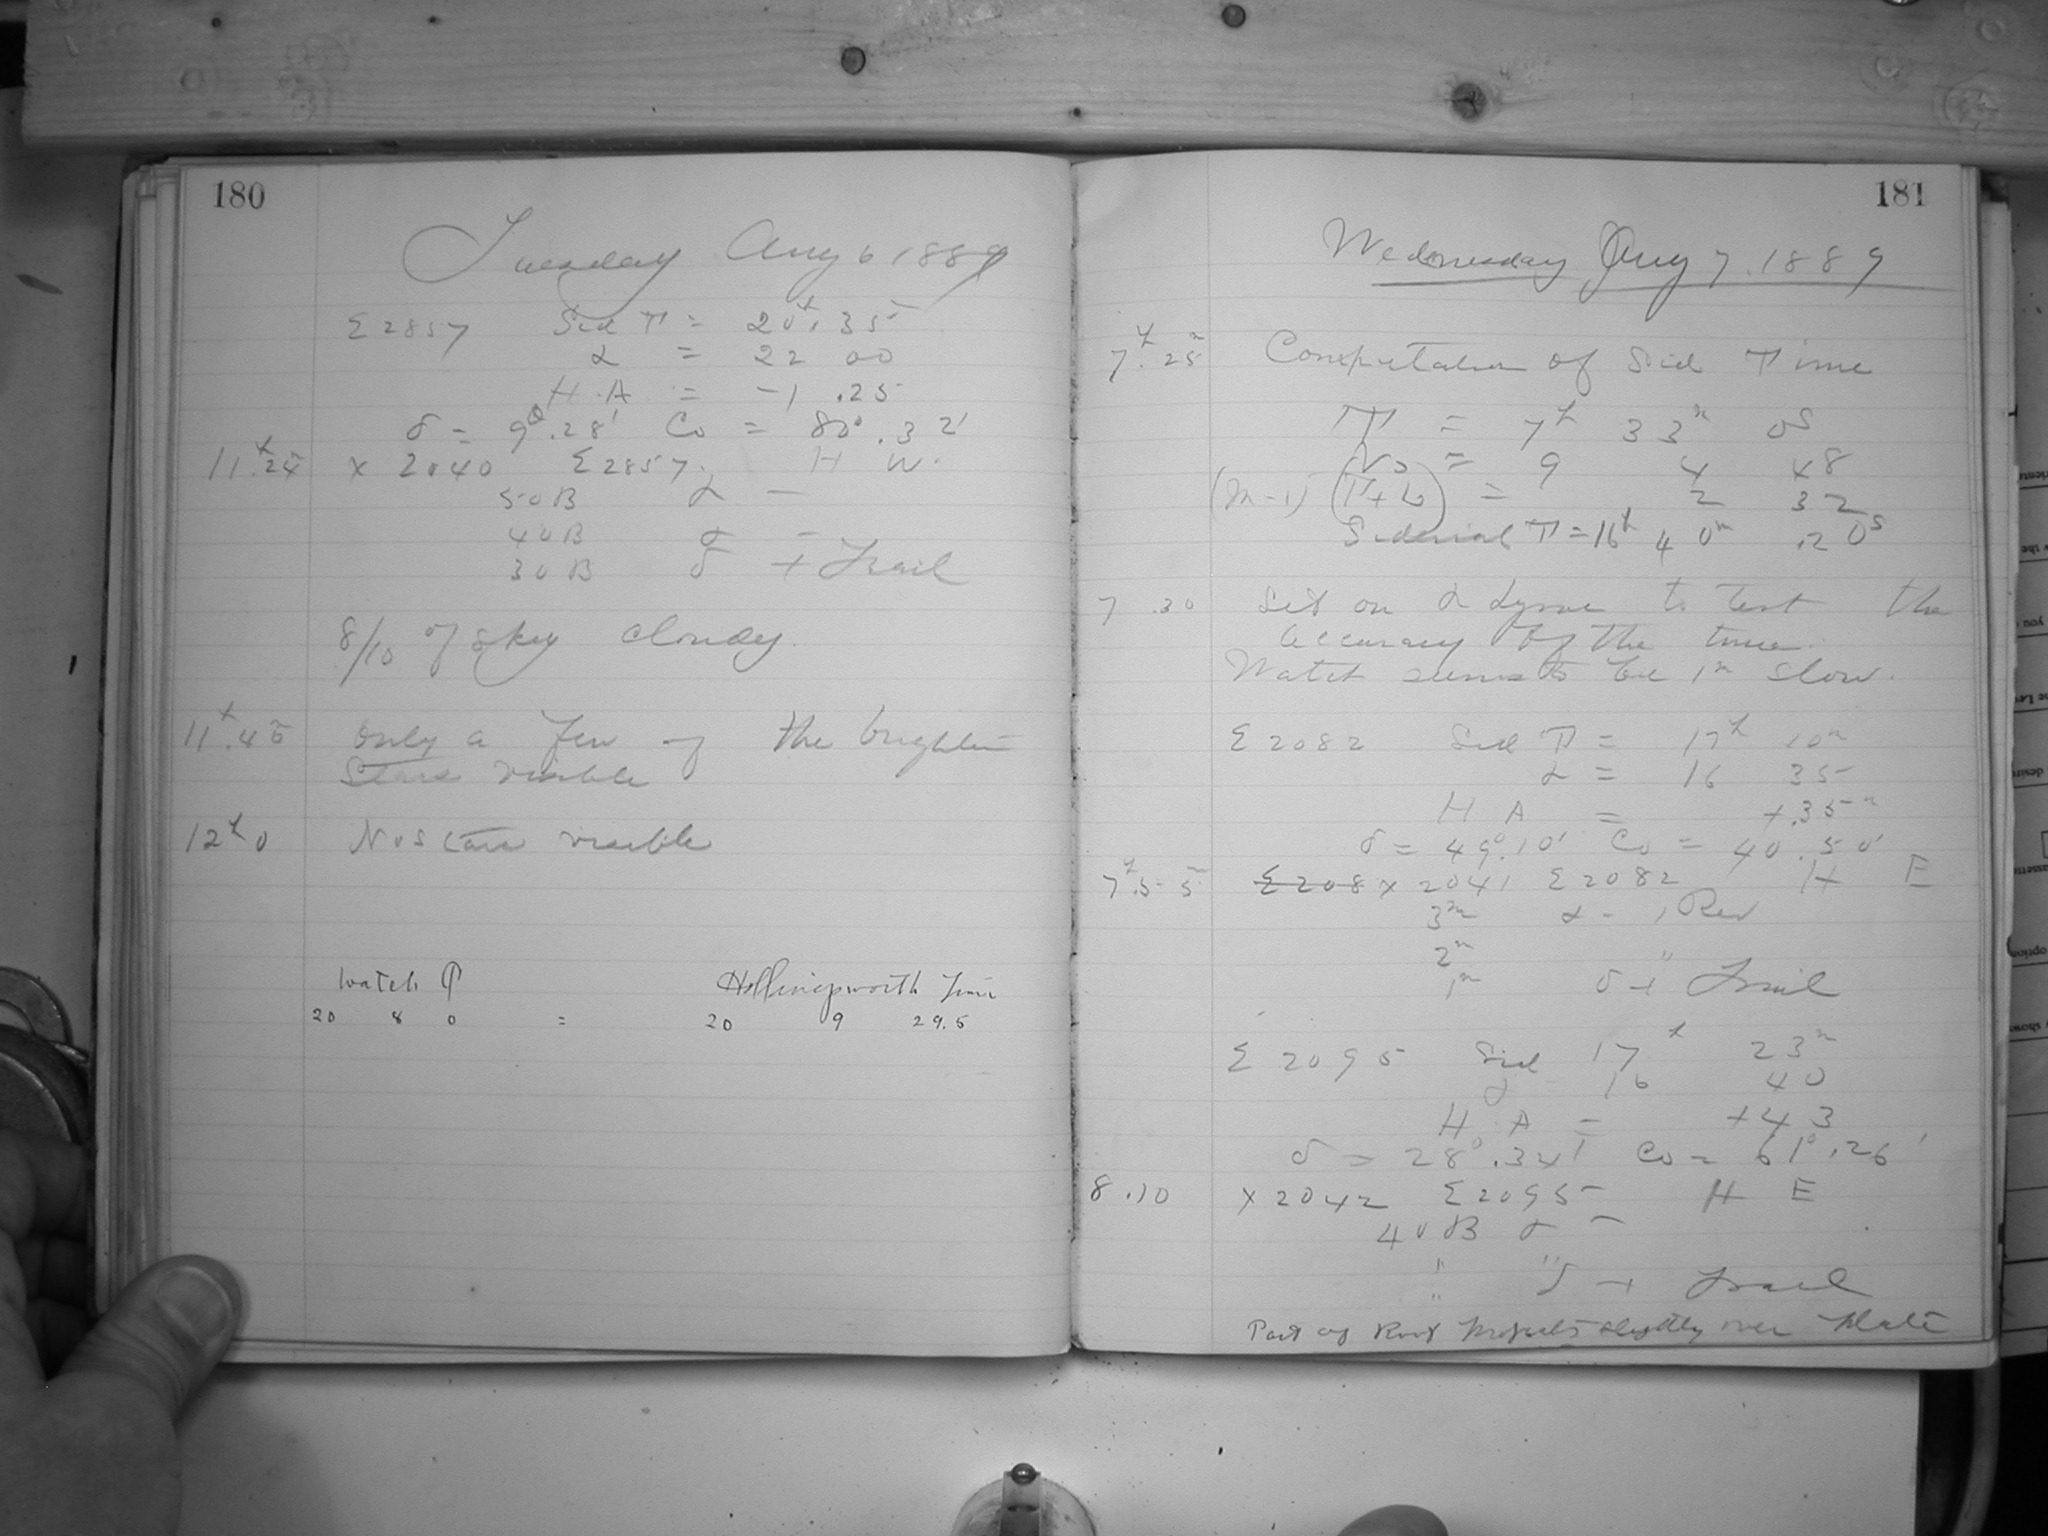 180
Tuesday Aug 6 1889
Σ 2857 Sid T = 20h. 35
α = 22 00
H.A. = -1 .25
δ = 9°.28' Co = 80°.32'
11h.25m × 2040 Σ2857. H W.
50B α —
40B
30B δ + Trail
8/10 of sky cloudy.
11h.45m Only a few of the brighter
stars visible
12h 0 No stars visible
Watch T Hollingsworth Time
20 8 0 = 20 9 29.5
181
Wednesday Aug 7. 1889
7h.25m Computation of Sid Time
T = 7h 33m 0s
= 9 4 48
(m-1) (T+L) = 2 32
Siderial T = 16h 40m .20s
7 .30 Set on α Lyrae to test the
accuracy of the time.
Watch seems to be 1m slow.
Σ 2082 Sid T = 17h 10m
α = 16 35
H A = +.35m
δ = 49°.10' Co = 40.50'
7h.55m Σ208 × 2041 Σ2082 H E
3m α - 1 Rev
2m "
1m δ + Trail
Σ 2095 Sid 17h 23m
α 16 40
H.A = +43
δ = 28°.34' Co = 61°.26'
8.10 × 2042 Σ2095 H E
40B δ -
" " δ + Trail
Part of Roof projects slightly over plate